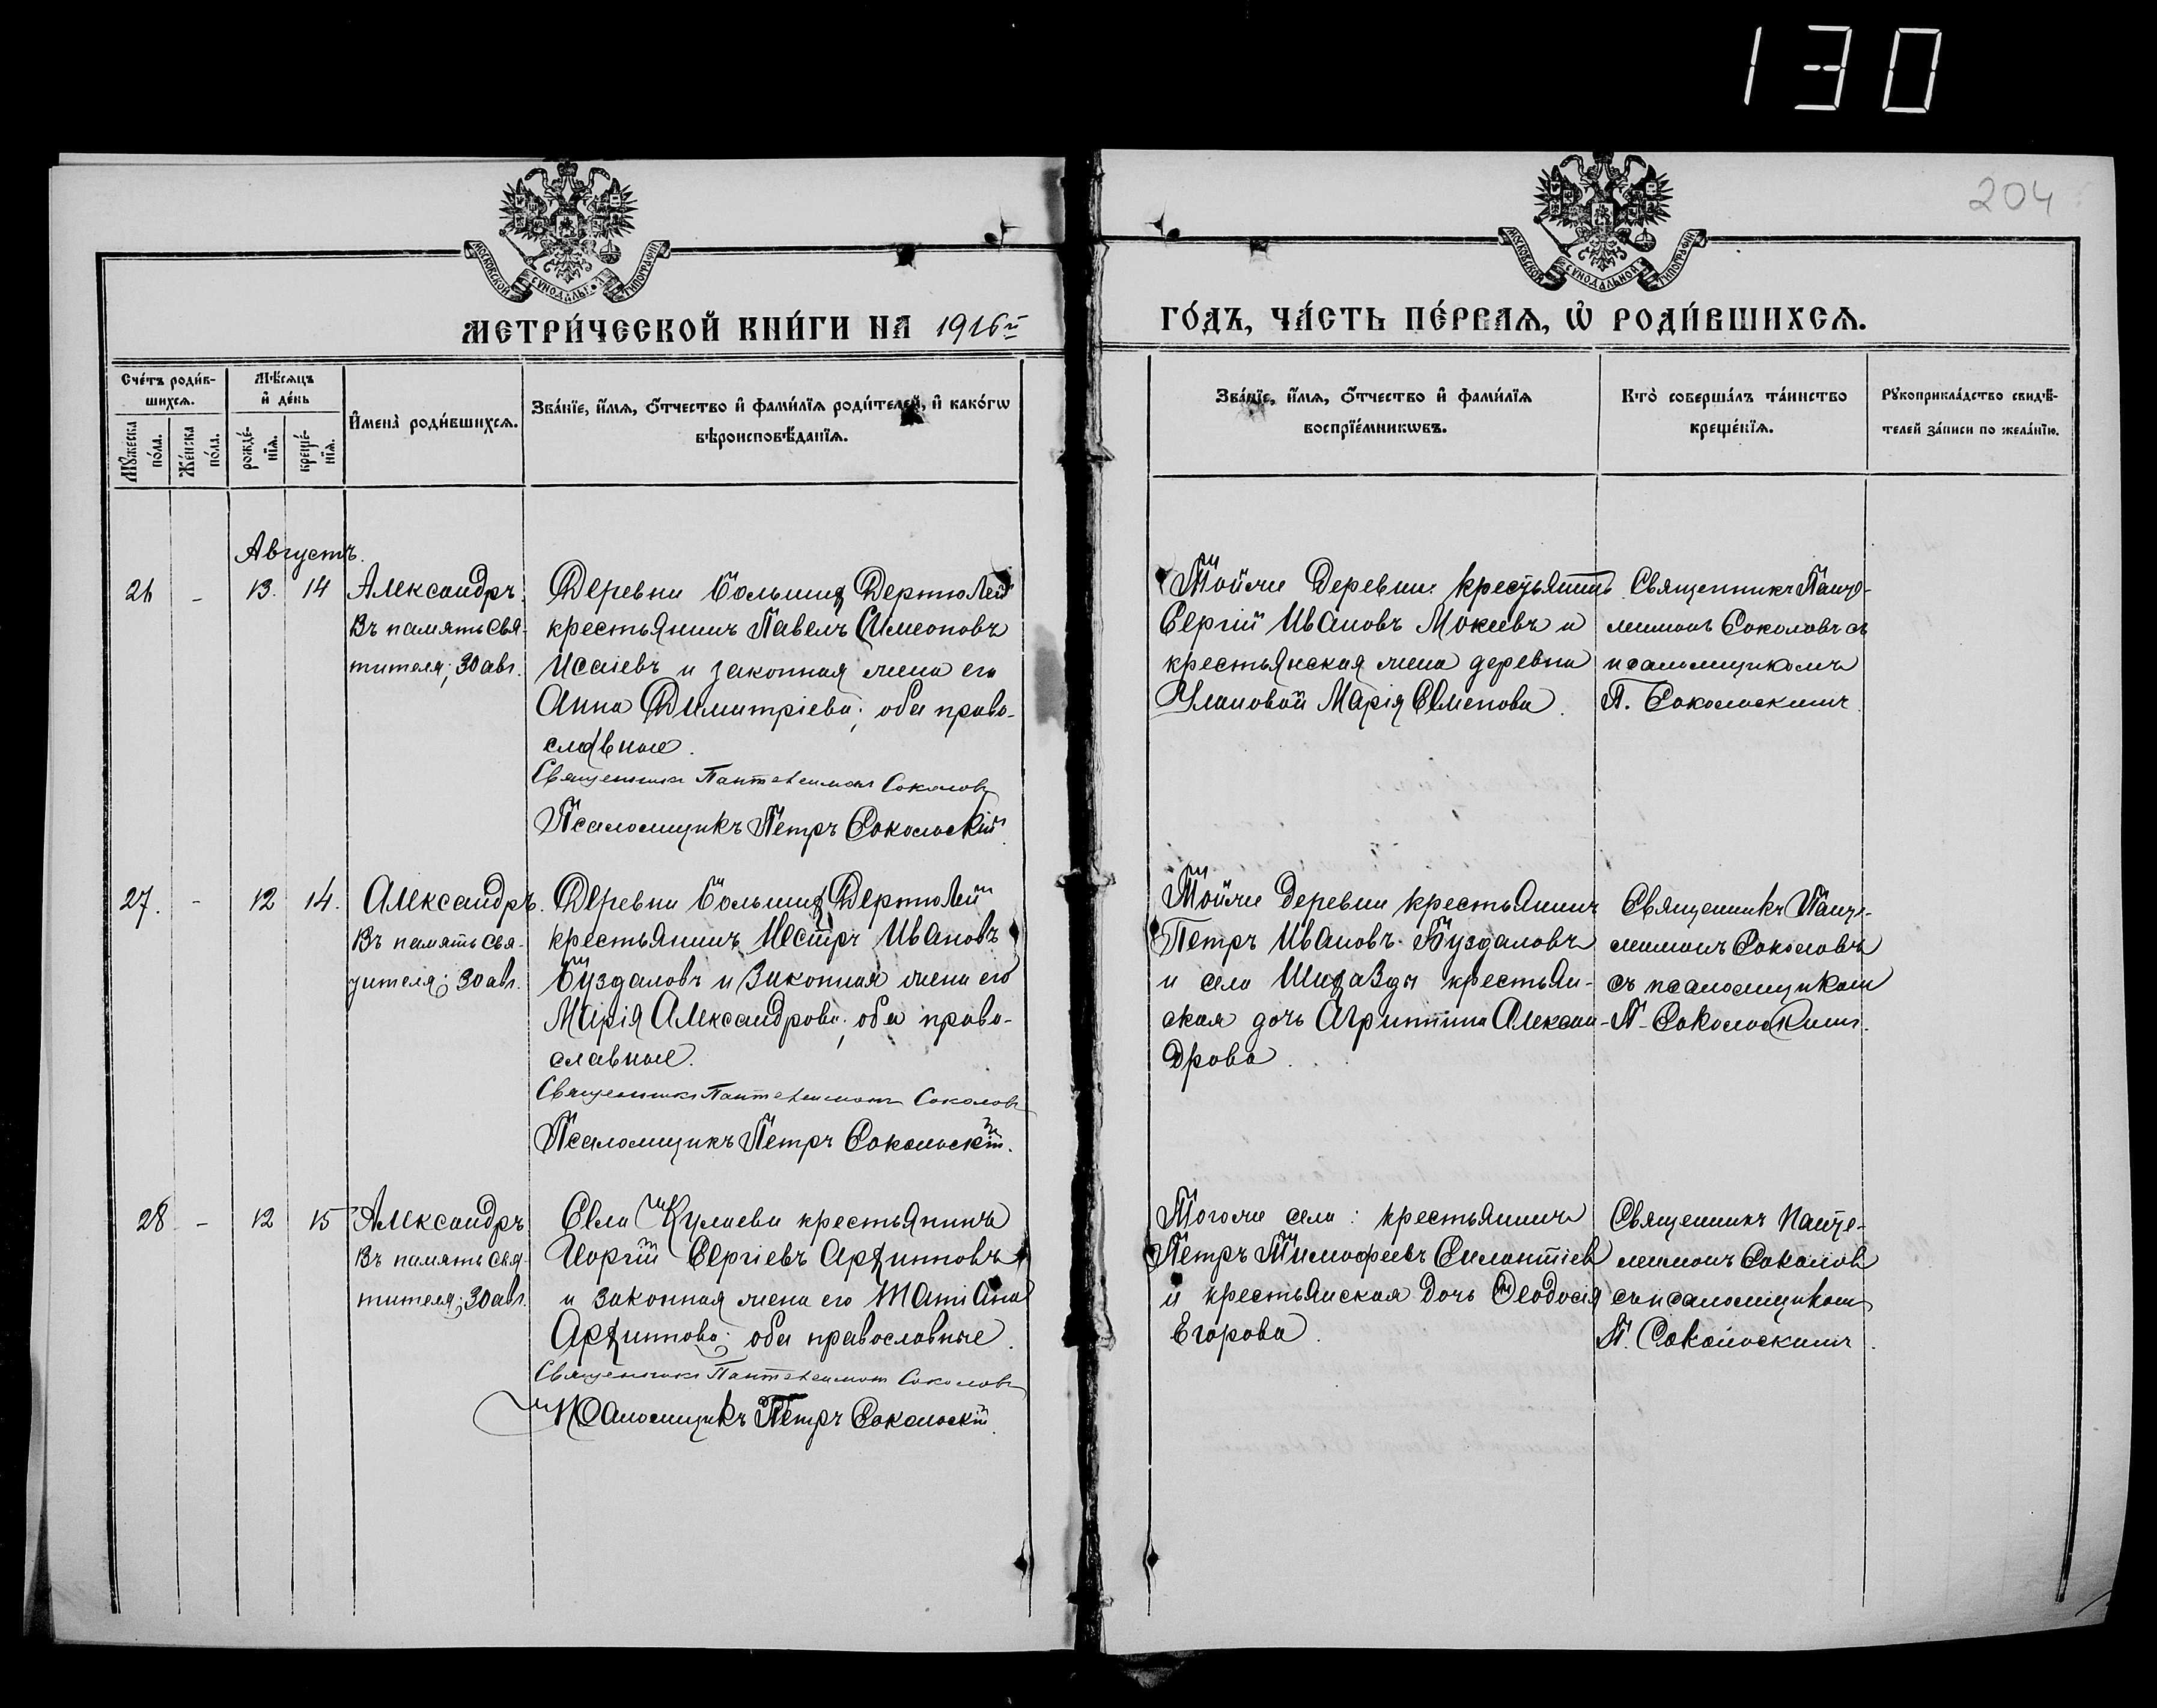 130
204
МОСКОВСКОЙ СѴНОДАЛЬНОЙ ТИПОГРАФІИ
МОСКОВСКОЙ СѴНОДАЛЬНОЙ ТИПОГРАФІИ
МЕТРИ́ЧЕСКОЙ КНИ́ГИ НА 1916й
ГО́ДЪ, ЧА́СТЬ ПЕ́РВАЯ, Ѡ҆ РОДИ́ВШИХСЯ.
Сче́тъ роди́в-
шихся.
Мꙋ́жеска по́ла.
Же́нска по́ла.
Мѣ́сяцъ
и҆ де́нь
рожде́-
нїя.
креще́-
нїя.
И҆мена̀ роди́вшихся.
Зва́нїе, и҆́мя, ѻ҆́тчество и҆ фами́лїя роди́телей, и҆ како́гѡ
вѣроисповѣ́данїя.
Зва́нїе, и҆́мя, ѻ҆́тчество и҆ фами́лїя
воспрїе́мникѡвъ.
Кто̀ соверша́лъ та́инство
креще́нїя.
Рꙋкоприкла́дство свидѣ́-
телей за́писи по жела́нїю.
Августъ.
26 - 13. 14 Александръ.
Въ память Свя-
тителя; 30 авг.
Деревни Большихъ Дертюлей
крестьянинъ Павелъ Симеоновъ
Исаіевъ и законная жена его
Анна Димитріева; оба право-
славные.
Священникъ Пантелеимонъ Соколовъ
Псаломщикъ Петръ Сокольскій.
Тойже Деревни крестьянинъ
Сергій Ивановъ Мокеевъ и
крестьянская жена деревни
Улановой Марія Семенова.
Священникъ Панте-
леимонъ Соколовъ съ
псаломщикомъ
П. Сокольскимъ.
27. - 12 14. Александръ.
Въ память Свя-
тителя; 30 авг.
Деревни Большихъ Дертюлей
крестьянинъ Несторъ Ивановъ
Буздаловъ и законная жена его
Марія Александрова; оба право-
славные.
Священникъ Пантелеимонъ Соколовъ
Псаломщикъ Петръ Сокольскій.
Тойже Деревни крестьянинъ
Петръ Ивановъ Буздаловъ
и села крестьян-
ская дочь Агриппина Алексан-
дрова.
Священникъ Панте-
леимонъ Соколовъ
съ псаломщикомъ
П. Сокольскимъ.
28 - 12 15 Александръ
Въ память Свя-
тителя; 30 авг.
Села Кулаева крестьянинъ
Георгій Сергіевъ Архиповъ
и законная жена его Татіана
Архипова; оба православные.
Священникъ Пантелеимонъ Соколовъ
Псаломщикъ Петръ Сокольскій.
Тогоже села: крестьянинъ
Петръ Тимофеевъ Силантіевъ
и крестьянская дочь Ѳеодосія
Егорова.
Священникъ Панте-
леимонъ Соколовъ
съ псаломщикомъ
П. Сокольскимъ.